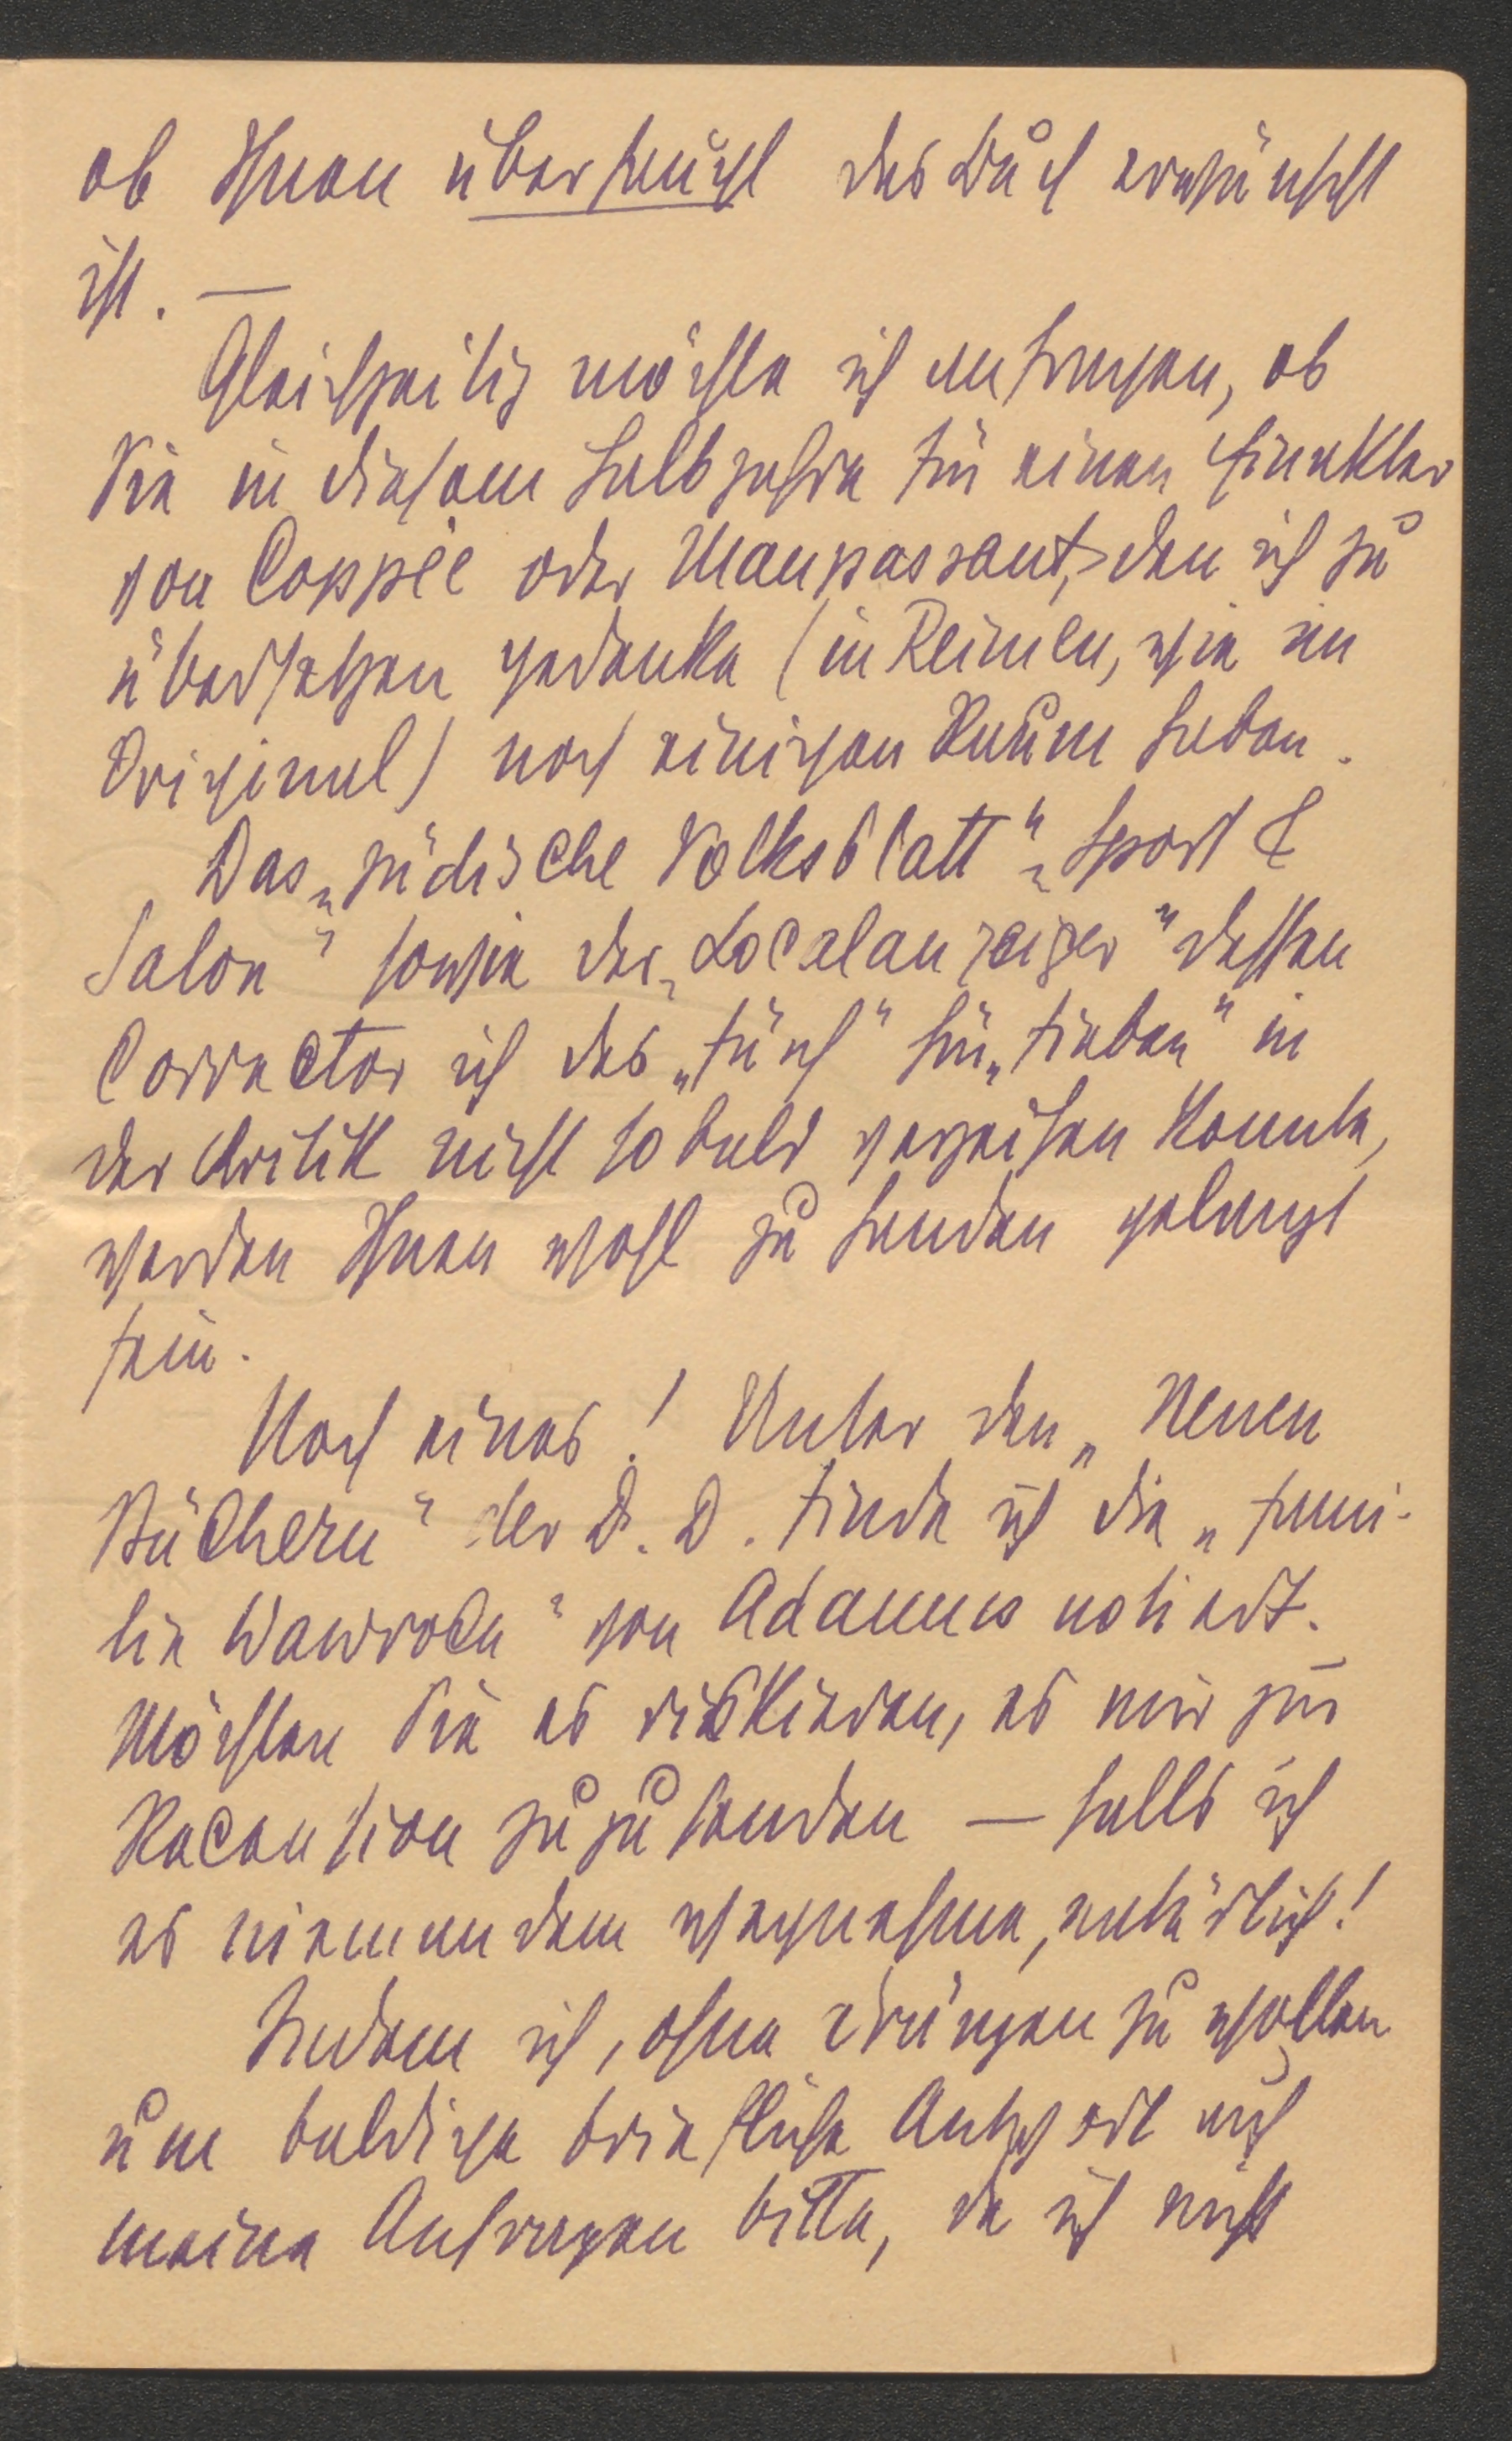 ob Ihnen überhaupt das Buch erwünscht
ist. —
Gleichzeitig möchte ich anfragen, ob
Sie in diesem Halbjahre für einen Einakter
von Coppée oder Maupassant, den ich zu
übersetzen gedenke (in Reimen, wie im
Original) noch einigen Raum haben.
Das „jüdische Volksblatt" „Sport &
Salon" sowie der „Localanzeiger" dessen
Corrector ich das „fünf" für „sieben" in
der Kritik nicht so bald verzeihen konnte,
werden Ihnen wohl zu Handen gelangt
sein.
Noch eines! Unter den „Neuen
Büchern" der D. D. finde ich die „Fami-
lie Wawroch" von Adamus notiert.
Möchten Sie es riskieren, es mir zur
Recension zuzusenden — falls ich
es niemandem wegnehme, natürlich!
Indem ich, ohne drängen zu wollen
um baldige briefliche Antwort auf
meine Anfragen bitte, da ich nicht